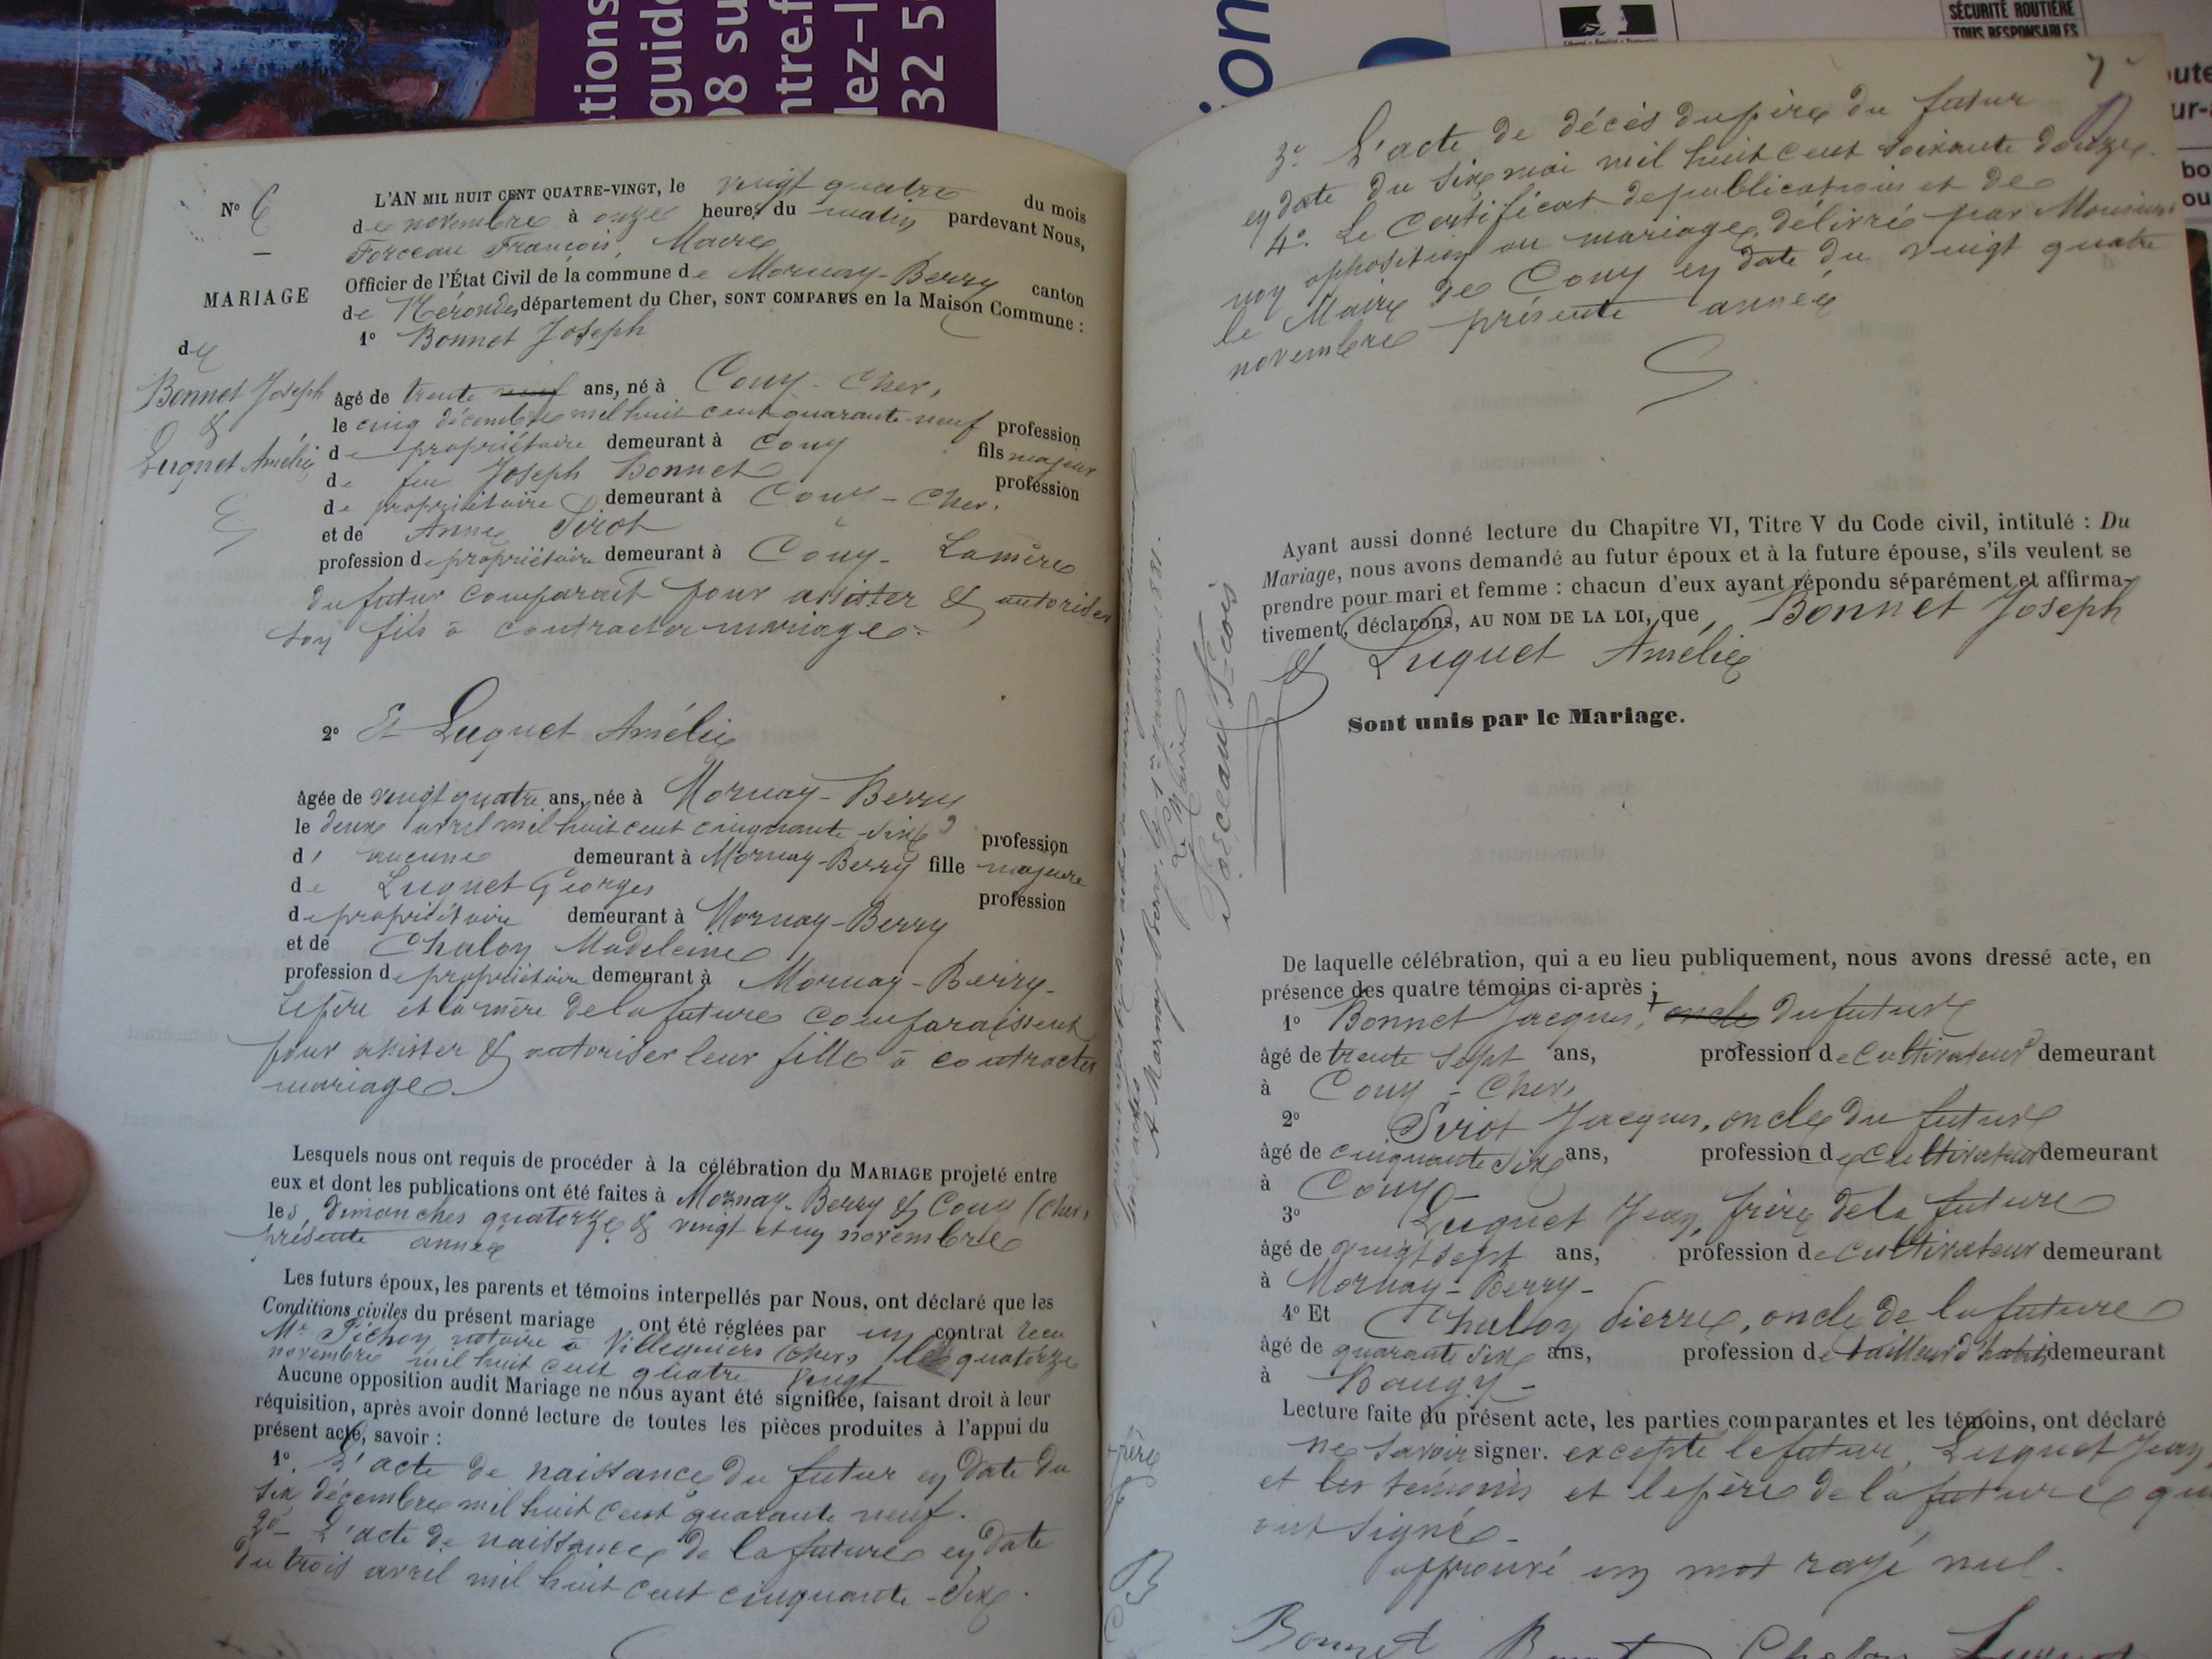 tions
guide
08 su
ntre.f
lez-l
32 5
ion
SÉCURITÉ ROUTIÈRE
TOUS RESPONSABLES
oute
ur-
bo
ou
N° 6
—
MARIAGE
de
Bonnet Joseph
&
Luquet Amélie
L'AN MIL HUIT CENT QUATRE-VINGT, le vingt quatre du mois
de novembre à onze heures du matin pardevant Nous,
Forceau François, Maire
Officier de l'État Civil de la commune de Mornay-Berry canton
de Nérondes département du Cher, SONT COMPARUS en la Maison Commune :
1° Bonnet Joseph
âgé de trente neuf ans, né à Couy - Cher,
le cinq décembre mil huit cent quarante-neuf profession
de propriétaire demeurant à Couy fils majeur
de feu Joseph Bonnet profession
de propriétaire demeurant à Couy - Cher.
et de Anne Sirot
profession de propriétaire demeurant à Couy - La mère
du futur comparait pour assister & autoriser
son fils à contracter mariage.
2° Et Luquet Amélie
âgée de vingt quatre ans, née à Mornay-Berry
le deux avril mil huit cent cinquante-six profession
d'aucune demeurant à Mornay-Berry fille majeure
de Luquet Georges profession
de propriétaire demeurant à Mornay-Berry
et de Chalon Madeleine
profession de propriétaire demeurant à Mornay-Berry-
Le père et la mère de la future comparaissent
pour assister & autoriser leur fille à contracter
mariage.
Lesquels nous ont requis de procéder à la célébration du MARIAGE projeté entre
eux et dont les publications ont été faites à Mornay-Berry & Couy (Cher)
les dimanches quatorze & vingt et un novembre
présente année
Les futurs époux, les parents et témoins interpellés par Nous, ont déclaré que les
Conditions civiles du présent mariage ont été réglées par un contrat reçu
Me Pichon notaire à Villequiers (Cher) le quatorze
novembre mil huit cent quatre vingt
Aucune opposition audit Mariage ne nous ayant été signifiée, faisant droit à leur
réquisition, après avoir donné lecture de toutes les pièces produites à l'appui du
présent acte, savoir :
1°. L'acte de naissance du futur en date du
six décembre mil huit cent quarante neuf.
2°- L'acte de naissance de la future en date
du trois avril mil huit cent cinquante-six.
7
3° L'acte de décès du père du futur
en date du six mai mil huit cent soixante douze.
4°. Le Certificat de publications et de
non opposition au mariage, délivré par Monsieur
le Maire de Couy en date du vingt quatre
novembre présente année
Ayant aussi donné lecture du Chapitre VI, Titre V du Code civil, intitulé : Du
Mariage, nous avons demandé au futur époux et à la future épouse, s'ils veulent se
prendre pour mari et femme : chacun d'eux ayant répondu séparément et affirma-
tivement, déclarons, AU NOM DE LA LOI, que Bonnet Joseph
& Luquet Amélie
Sont unis par le Mariage.
A Mornay-Berry, le 1er janvier 1881.
Le Maire
Forceau Fçois
De laquelle célébration, qui a eu lieu publiquement, nous avons dressé acte, en
présence des quatre témoins ci-après :
1° Bonnet Jacques, + oncle du futur
âgé de trente sept ans, profession de cultivateur demeurant
à Couy - Cher
2° Sirot Jacques, oncle du futur
âgé de cinquante six ans, profession de cultivateur demeurant
à Couy -
3° Luquet Jean, frère de la future
âgé de vingt sept ans, profession de cultivateur demeurant
à Mornay-Berry-
4° Et Chalon Pierre, oncle de la future
âgé de quarante six ans, profession de tailleur d'habits demeurant
à Baugy -
Lecture faite du présent acte, les parties comparantes et les témoins, ont déclaré
ne savoir signer. excepté le futur, Luquet Jean,
et les témoins et le père de la future qui
ont signé -
approuvé un mot rayé nul.
+ frère
Bonnet Chalon Luquet